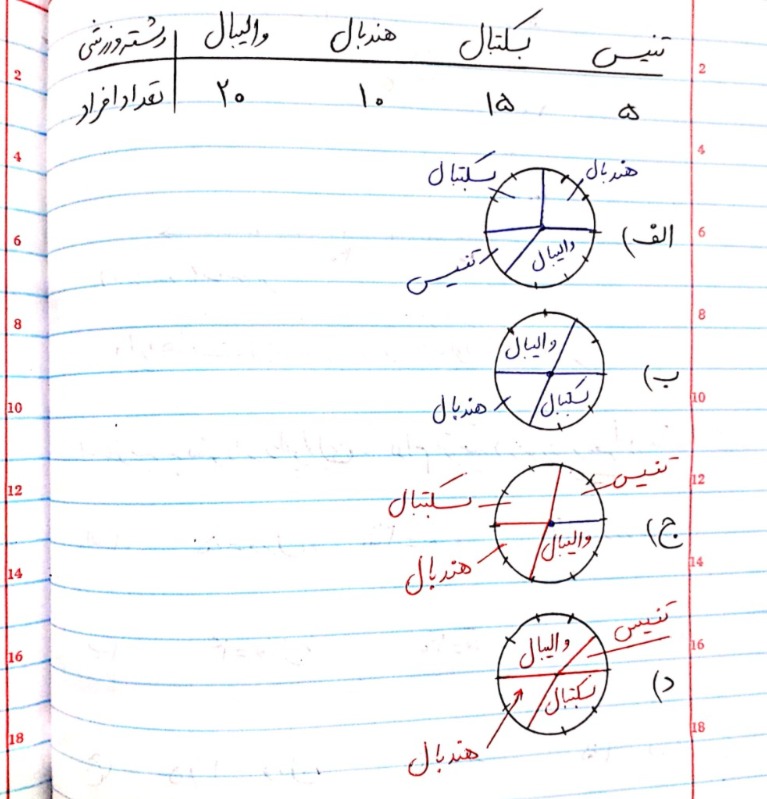 رشته ورزشی والیبال هندبال بسکتبال تنیس
تعداد افراد ۲۰ ۱۰ ۱۵ ۵
الف) هندبال بسکتبال والیبال تنیس
ب) والیبال بسکتبال هندبال
ج) تنیس بسکتبال والیبال هندبال
د) تنیس والیبال بسکتبال هندبال
2 2
4 4
6 6
8 8
10 10
12 12
14 14
16 16
18 18